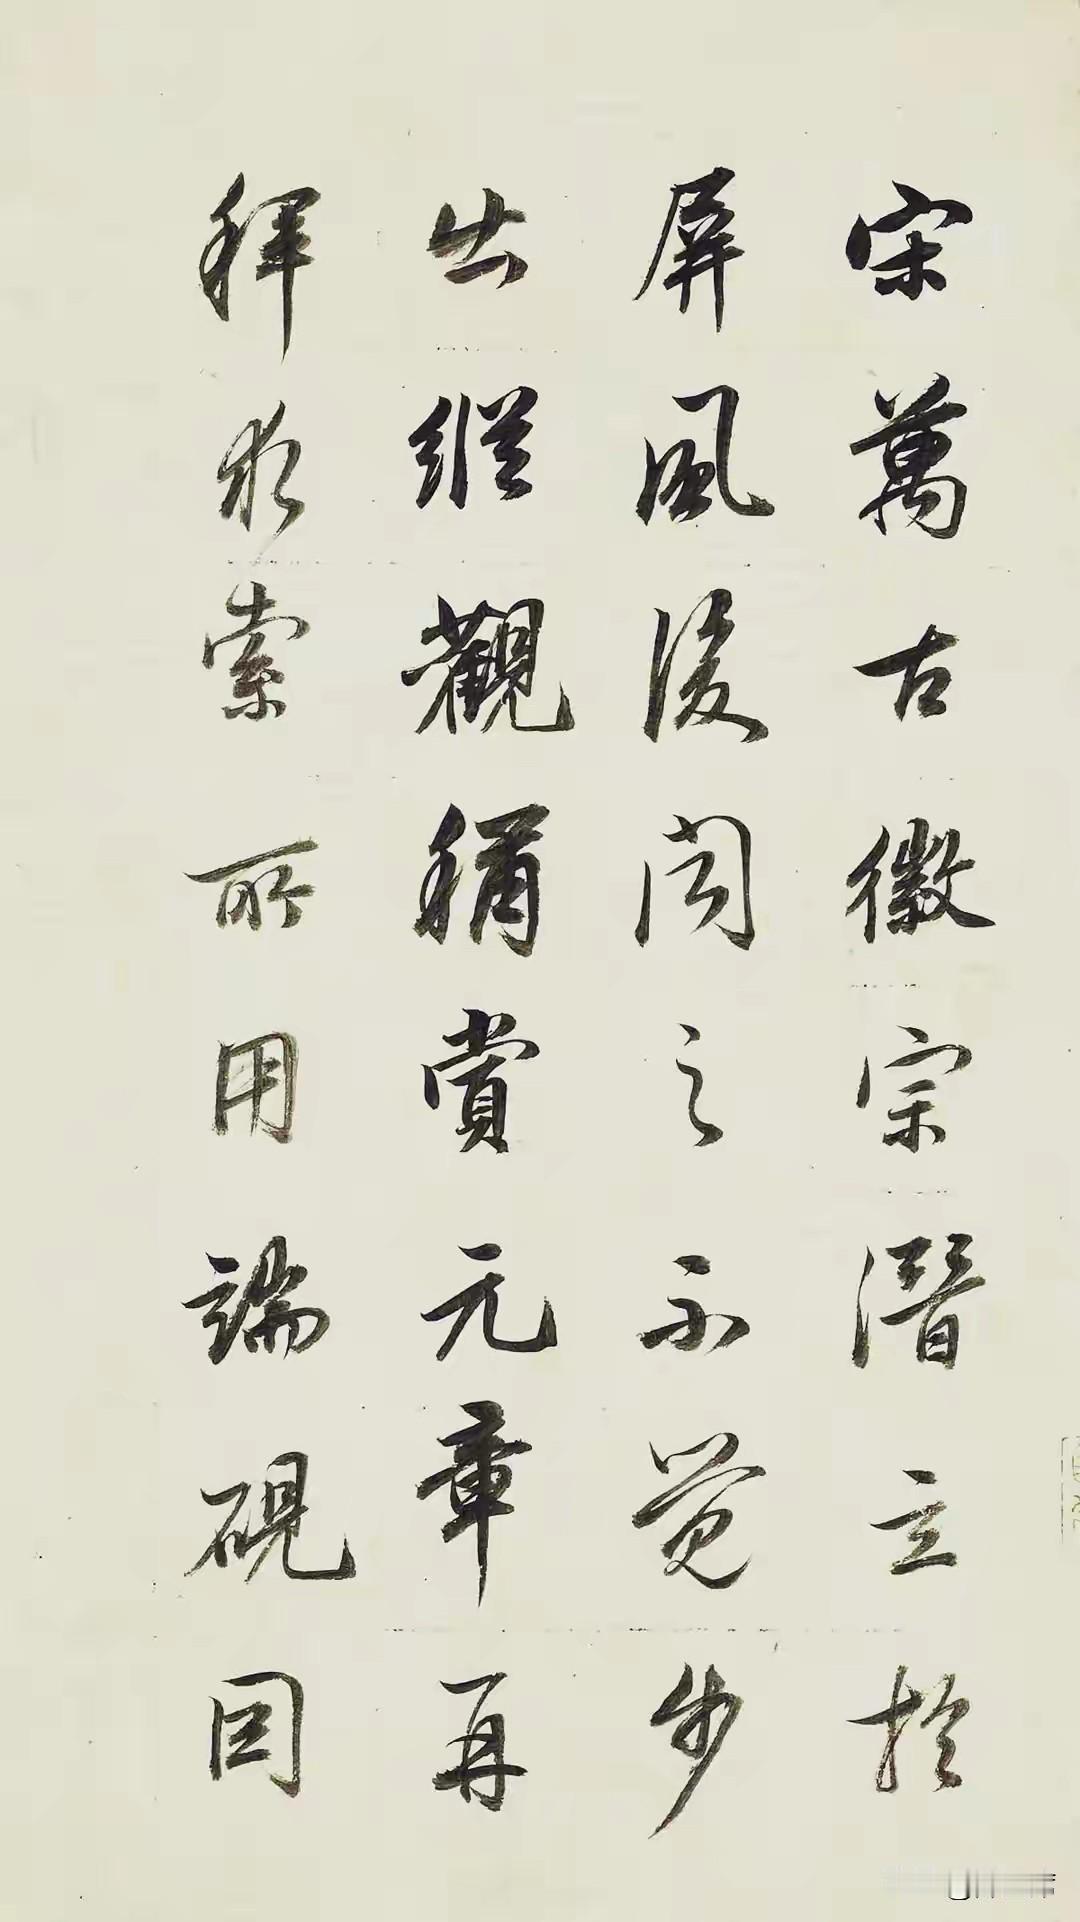 宋萬古徽宗潛立於
屏風後聞之不覺步
出縱觀稱賞元章再
拜求索所用端硯因